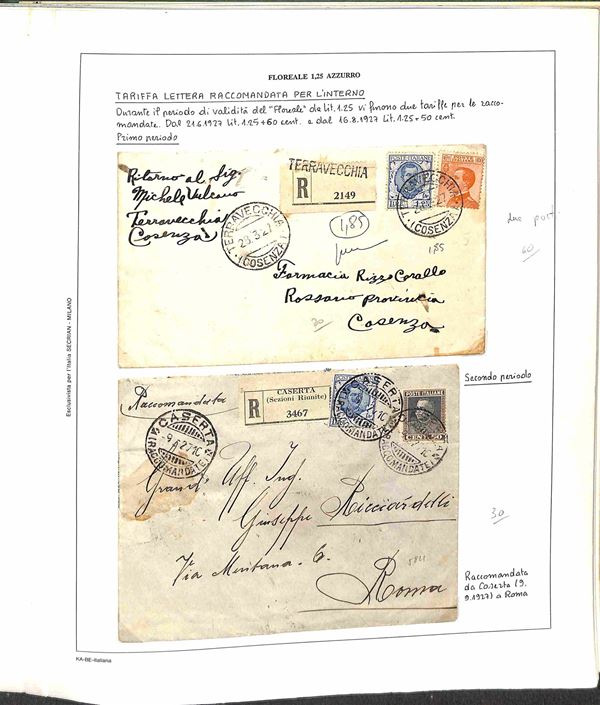 FLOREALE 1,25 AZZURRO
TARIFFA LETTERA RACCOMANDATA PER L'INTERNO
Durante il periodo di validità del "Floreale" da Lit. 1.25 vi furono due tariffe per le racco-
mandate. Dal 21.6.1927 Lit. 1.25+60 cent. e dal 16.8.1927 Lit. 1.25+50 cent.
Primo periodo
Ritorno al Sig.
Michele Vulcano
Terravecchia
(Cosenza)
TERRAVECCHIA
R
2149
POSTE ITALIANE
TERRAVECCHIA
(COSENZA)
TERRAVECCHIA
(COSENZA)
1,85
1,85
60
Farmacia Rizzo Corallo
Rossano provincia
Cosenza
30
Esclusivista per l'Italia SECRIAN - MILANO
Secondo periodo
Raccomandata
CASERTA
(Sezioni Riunite)
R
3467
CASERTA
(RACCOMANDATE)
CASERTA
(RACCOMANDATE)
POSTE ITALIANE
CENT. 50
(RACCOMANDATE)
Grand' Uff. Ing.
Giuseppe Ricciardelli
Via Mentana. 6.
Roma
30
Raccomandata
da Caserta (9.
9.1927) a Roma
KA-BE-Italiana